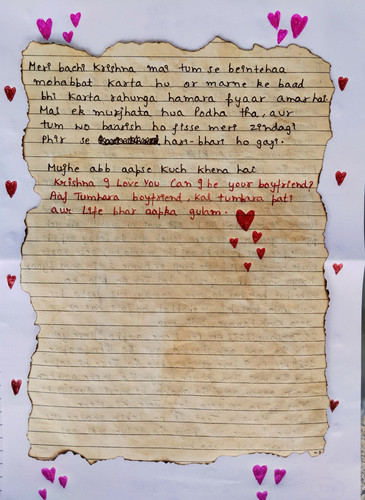 Meri bachi Krishna mai tum se beintehaa
mohabbat karta hu or marne ke baad
bhi karta rahunga hamara pyaar amar hai.
Mai ek murjhata hua Podha tha, aur
tum wo baarish ho jisse meri zindagi
Phir se hari-bhari ho gayi.
Mujhe abb aapse kuch khena hai
Krishna I Love You Can I be your boyfriend?
Aaj Tumhara boyfriend, kal tumhara pati
aur Life bhar aapka gulam.